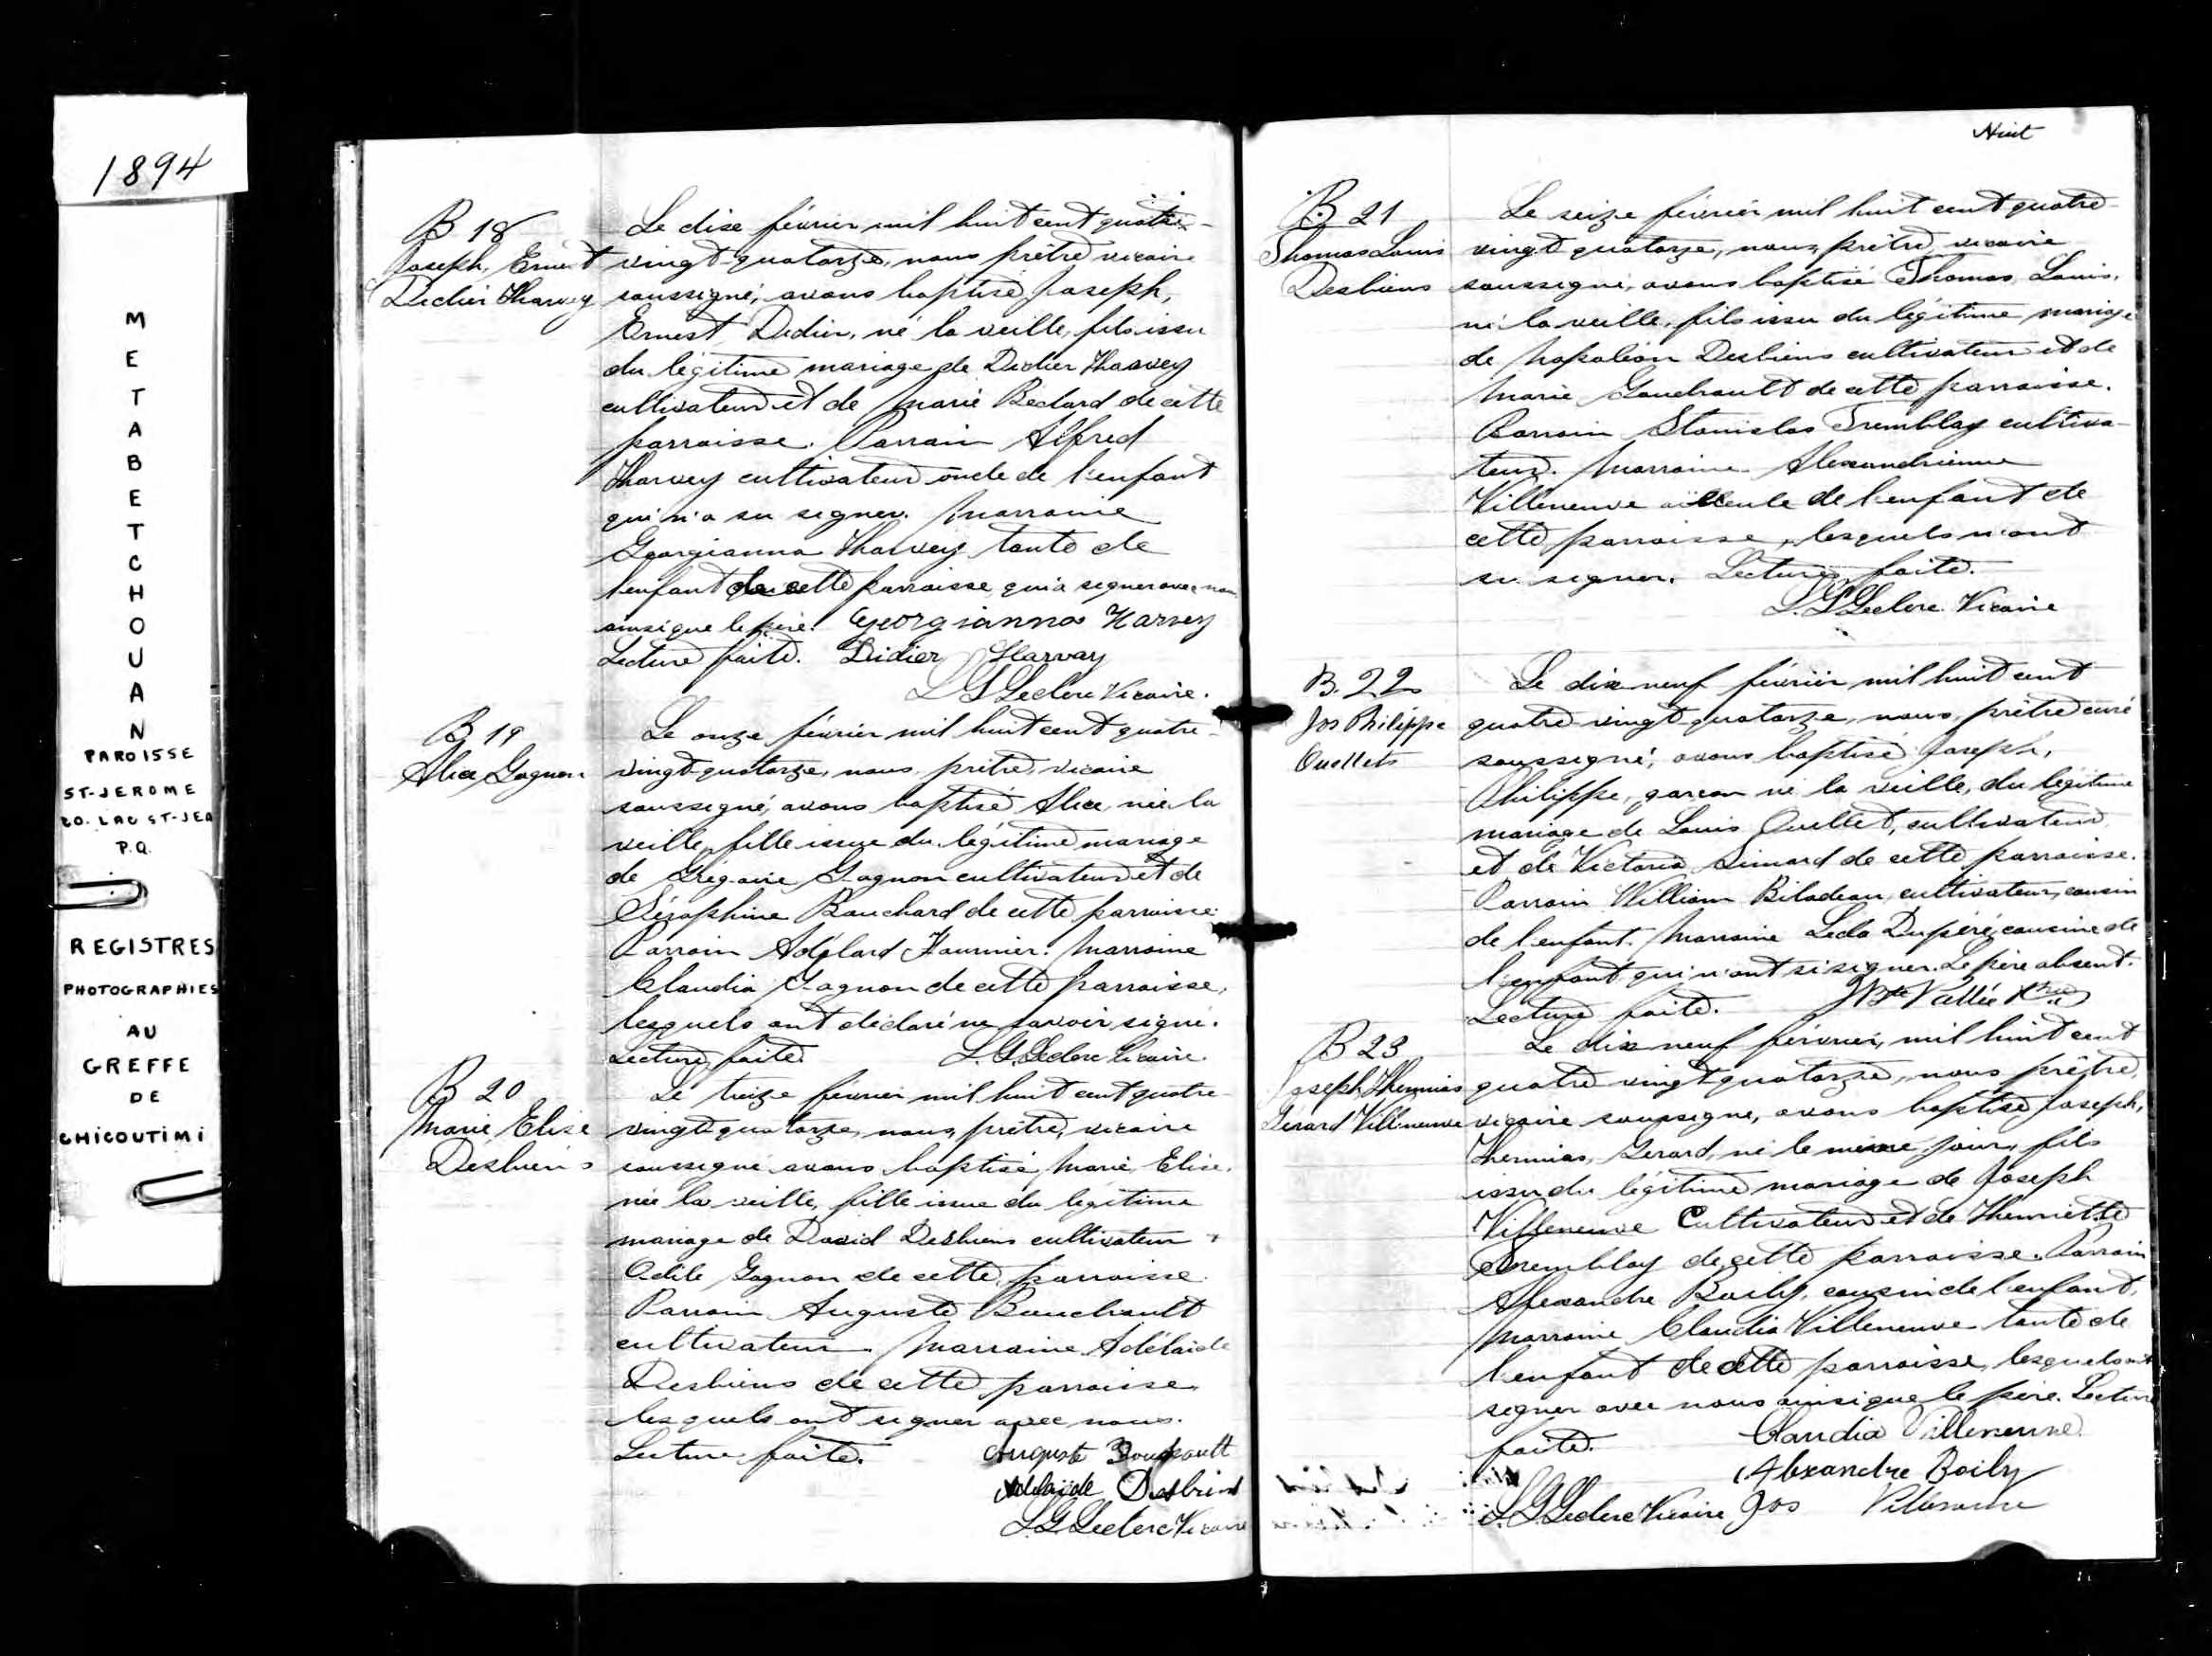 1894
METABETCHOUAN
PAROISSE
ST-JEROME
CO. LAC ST-JEA
P.Q.
REGISTRES
PHOTOGRAPHIES
AU
GREFFE
DE
CHICOUTIMI
B 18
Joseph, Ernest
Didier Tharvey
Le dixe février mil huit cent quatre-
vingt-quatorze, nous prêtre vicaire
soussigné, avons baptisé Joseph,
Ernest Didier, né la veille, fils issu
du légitime mariage de Didier Tharvey
cultivateur et de Marie Beclard de cette
parroisse. Parrain Alfred
Tharvey cultivateur oncle de l'enfant
qui n'a su signer. Marraine
Georgianna Tharvey tante de
l'enfant de cette parroisse, qui a signer avec nous
ainsi que le père. Georgianna Harvey
Lecture faite. Didier Harvay
L G Leclerc Vicaire.
B 19
Alice Gagnon
Le onze février mil huit cent quatre-
vingt-quatorze, nous, prêtre, vicaire
soussigné, avons baptisé Alice, née la
veille, fille issue du légitime mariage
de Grégoire Gagnon cultivateur et de
Séraphine Bouchard de cette parroisse.
Parrain Adélard Fournier. Marraine
Claudia Gagnon de cette parroisse,
lesquels ont déclaré ne savoir signé.
Lecture faite L. G. Leclerc Vicaire.
B 20
Marie, Elise
Desbiens
Le treize février mil huit cent quatre-
vingt-quatorze, nous, prêtre, vicaire
soussigné avons baptisé, Marie, Elise,
née la veille, fille issue du légitime
mariage de David Desbiens cultivateur &
Odile Gagnon de cette parroisse.
Parrain Auguste Bouchault
cultivateur. Marraine Adélaide
Desbiens de cette parroisse,
lesquels ont signer avec nous.
Lecture faite. Auguste
Adélaide Desbiens
L. G Leclerc Vicaire
Huit
B. 21
Thomas Louis
Desbiens
Le seize février mil huit cent quatre-
vingt quatorze, nous, prêtre vicaire
soussigné, avons baptisé Thomas, Louis,
né la veille, fils issu du légitime mariage
de Napoléon Desbiens cultivateur et de
Marie Gaudrault de cette parroisse.
Parrain Stanislas Tremblay cultiva-
teur. Marraine Alexandrienne
Villeneuve aïlleule de l'enfant de
cette parroisse, lesquels n'ont
su signer. Lecture faite.
L. G Leclerc Vicaire
B. 22
Jos Philippe
Ouellets
Le dix neuf février mil huit cent
quatre vingt quatorze, nous, prêtre curé
soussigné, avons baptisé Joseph,
Philippe, garcon né la veille, du légitime
mariage de Louis Ouellet, cultivateur
et de Victoria Simard de cette parroisse.
Parrain William Biladeau, cultivateur, cousin
de l'enfant. Marraine Léda Dupéré, cousine de
l'enfant qui n'ont si signer. Le père absent.
Lecture faite. Vallée Ptre
B 23
Joseph, Thermias
Gerard Villeneuve
Le dix neuf février, mil huit cent
quatre vingt quatorze, nous prêtre,
vicaire soussigné, avons baptisé Joseph,
Thermias, Gerard, né le même jour, fils
issu du légitime mariage de Joseph
Villeneuve Cultivateur et de Thenriette
Tremblay de cette parroisse. Parrain
Alexandre Boily, cousin de l'enfant,
Marraine Claudia Villeneuve tante de
l'enfant de cette parroisse, lesquels ont
signer avec nous ainsi que le père. Lecture
faite. Claudia Villeneuve
Alexandre Boily
L. G Leclerc Vicaire Jos Villeneuve